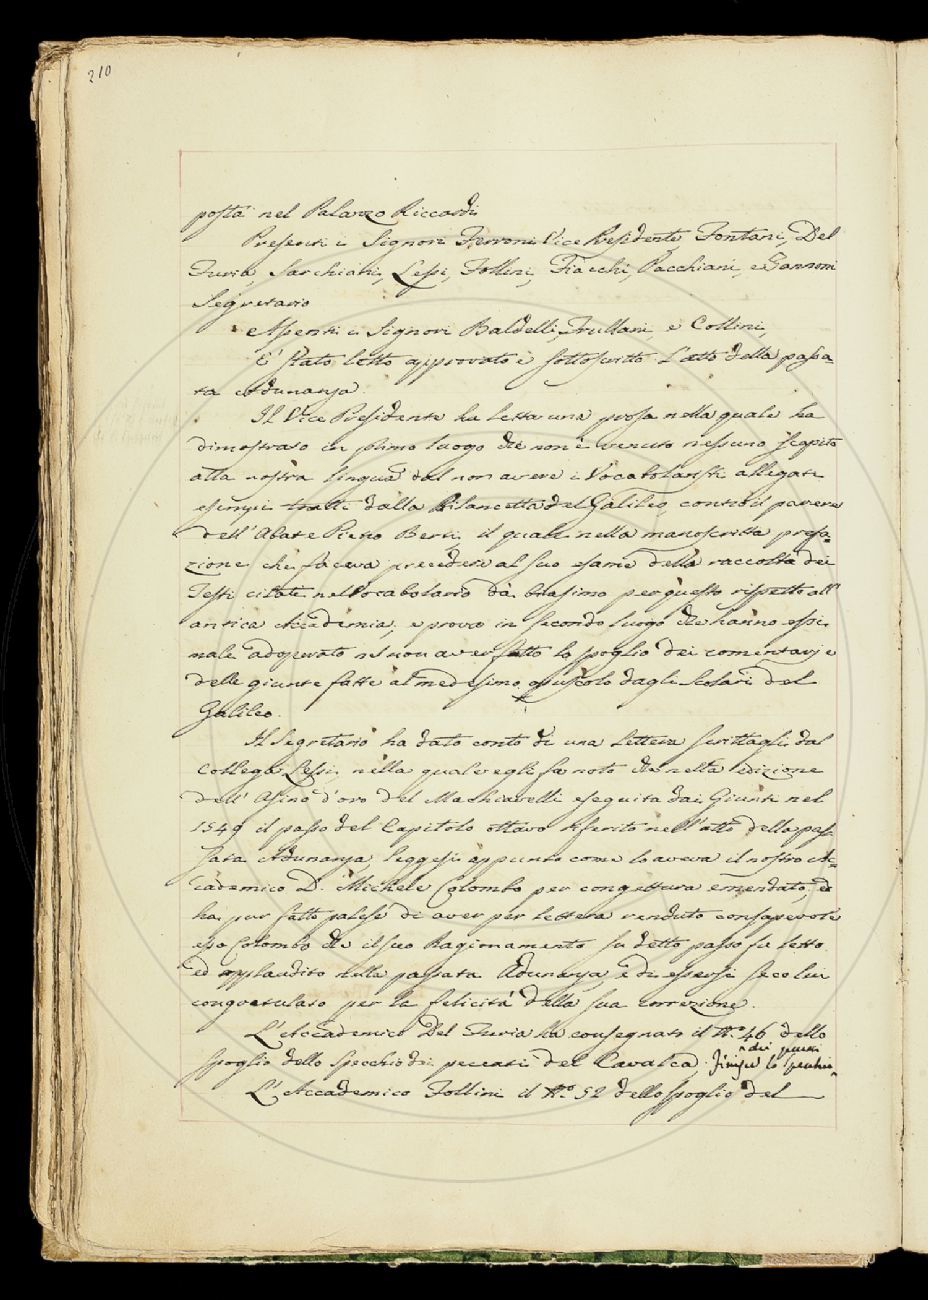 210
posta nel Palazzo Riccardi
Presenti i Signori Ferroni Vice Presidente, Fontani, Del
Furia, Sarchiani, Lessi, Follini, Fiacchi, Pacchiani, e Zannoni
Segretario
Assenti i Signori Baldelli, Frullani, e Collini,
E' stato letto approvato e sottoscritto l'atto della passa-
ta Adunanza
Il Vice Presidente ha letta una prosa nella quale ha
dimostrato in primo luogo che non è venuto nessuno scapito
alla nostra lingua dal non avere i Vocabolaristi allegati
esempi tratti dalla Bilancetta del Galileo, contro il parere
dell' Abate Pietro Berti, il quale nella manoscritta prefa-
zione che faceva precedere al suo esame della raccolta dei
Testi citati nel Vocabolario dà biasimo per questo rispetto all'
antica Accademia, e provò in secondo luogo che hanno essi
male adoperato nel non aver fatto lo spoglio dei comentarj e
delle giunte fatte al medesimo opuscolo dagli Scolari del
Galileo.
Il Segretario ha dato conto di una lettera scrittagli dal
Collega Lessi, nella quale egli fa noto che nella edizione
dell' Asino d'oro del Machiavelli eseguita dai Giunti nel
1549 il passo del Capitolo ottavo riferito nell'atto della pas-
sata Adunanza, leggesi appunto come lo aveva il nostro Ac-
cademico D. Michele Colombo per congettura emendato, ed
ha pur fatto palese di aver per lettera renduto consapevole
esso Colombo che il suo Ragionamento su detto passo fu letto
ed applaudito nella passata Adunanza e di essersi seco lui
congratulato per la felicità della sua correzione.
L'Accademico Del Furia ha consegnato il N.º 46 dello
spoglio dello Specchio dei peccati del Cavalca. Finisce lo specchio
dei peccati
L'Accademico Follini il N.º 52 dello spoglio del